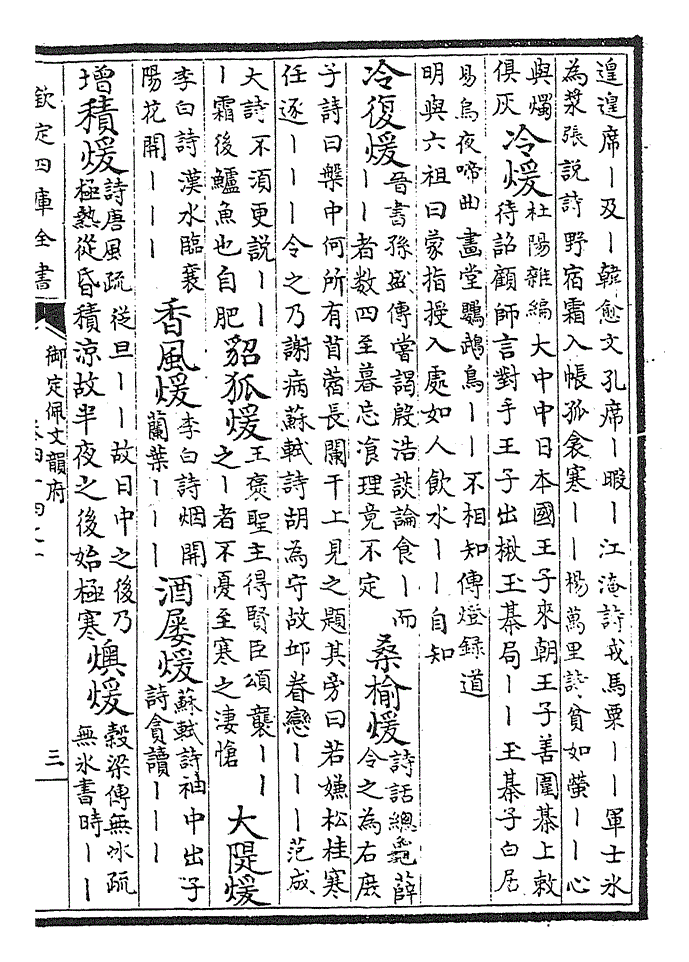 遑遑席丨及丨韓愈文孔席丨暇丨江淹詩戎馬粟丨丨軍士氷
為漿張說詩野宿霜入帳孤衾寒丨丨楊萬里詩貧如螢丨丨心
與燭
俱灰
冷煖
杜陽雜編大中中日本國王子來朝王子善圍棊上敕
待詔顧師言對手王子出楸玉棊局丨丨玉棊子白居
易烏夜啼曲畫堂鸚鵡鳥丨丨不相知傳燈録道
明與六祖曰蒙指授入處如人飲水丨丨自知
冷復煖
晉書孫盛傳嘗謁殷浩談論食丨而
丨丨者數四至暮忘飡理竟不定
桑榆煖
詩話總龜薛
令之為右庶
子詩曰槃中何所有苜蓿長闌干上見之題其旁曰若嫌松桂寒
任逐丨丨丨令之乃謝病蘇軾詩胡為守故邱眷戀丨丨丨范成
大詩不須更說丨丨
丨霜後鱸魚也自肥
貂狐煖
王褒聖主得賢臣頌襲丨丨
之丨者不憂至寒之淒愴
大隄煖
李白詩漢水臨襄
陽花開丨丨丨
香風煖
李白詩烟開
蘭葉丨丨丨
酒屡煖
蘇軾詩袖中出子
詩貪讀丨丨丨
增積煖
詩唐風疏從旦丨丨故日中之後乃
極熱從昏積涼故半夜之後始極寒
燠煖
榖梁傳無氷疏
無氷書時丨丨
欽定四庫全書
御定佩文韻府
卷四十四之一
三